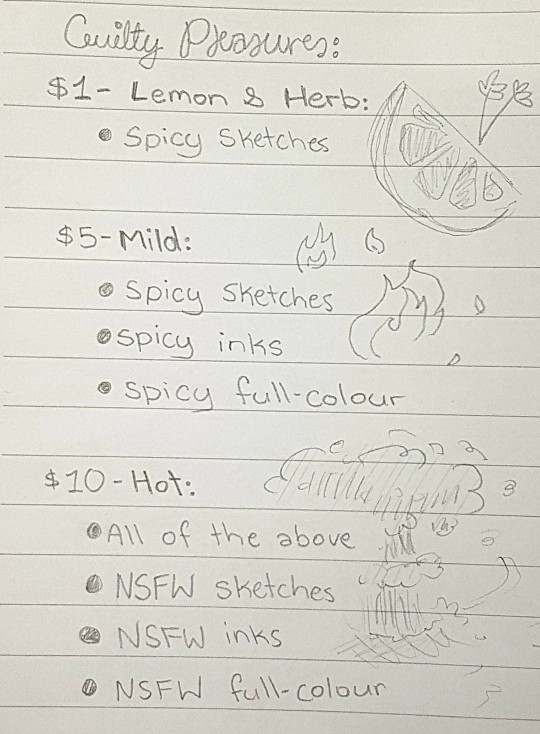 Guilty Pleasures:
$1- Lemon & Herb:
Spicy Sketches
$5-Mild:
Spicy Sketches
spicy inks
spicy full-colour
$10-Hot:
All of the above
NSFW sketches
NSFW inks
NSFW full-colour